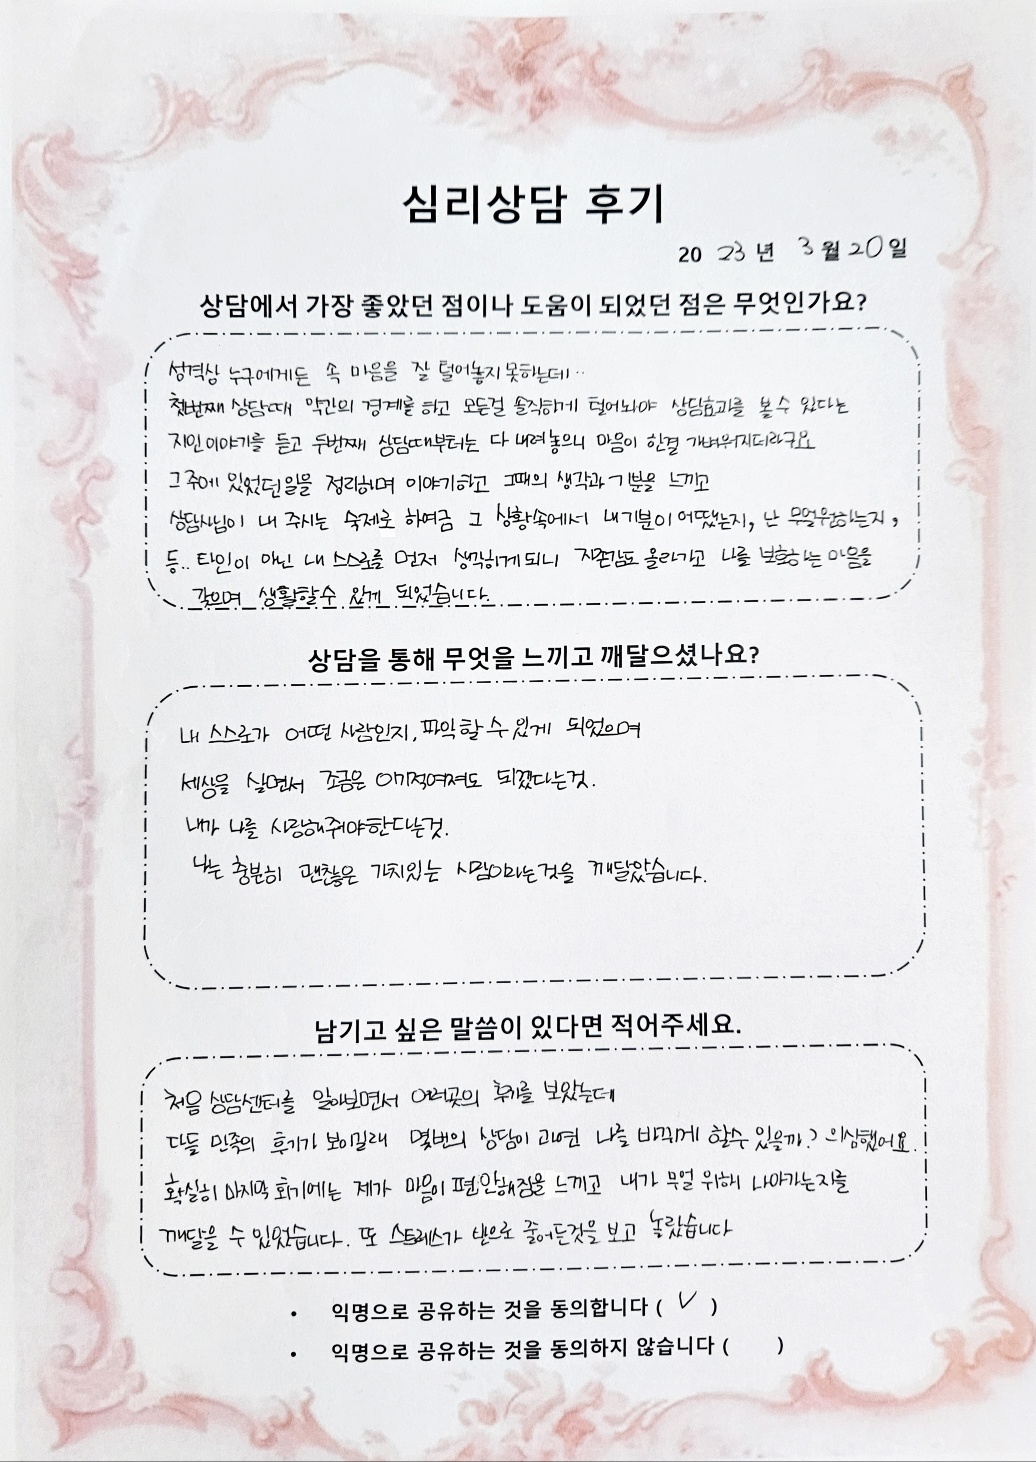 심리상담 후기
2023년 3월 20일
상담에서 가장 좋았던 점이나 도움이 되었던 점은 무엇인가요?
성격상 누구에게든 속 마음을 잘 털어놓지 못하는데..
첫번째 상담때 약간의 경계를 하고 모든걸 솔직하게 털어놔야 상담효과를 볼 수 있다는
지인 이야기를 듣고 두번째 상담때부터는 다 내려놓으니 마음이 한결 가벼워지더라구요
그 주에 있었던 일을 정리하며 이야기하고 그때의 생각과 기분을 느끼고
상담사님이 내 주시는 숙제로 하여금 그 상황속에서 내 기분이 어땠는지, 난 무얼 원하는지,
등.. 타인이 아닌 내 스스로를 먼저 생각하게 되니 자존감도 올라가고 나를 보호하는 마음을
갖으며 생활할 수 있게 되었습니다.
상담을 통해 무엇을 느끼고 깨달으셨나요?
내 스스로가 어떤 사람인지, 파악할 수 있게 되었으며
세상을 살면서 조금은 이기적여져도 되겠다는것.
내가 나를 사랑해줘야한다는것.
나는 충분히 괜찮은 가치있는 사람이라는것을 깨달았습니다.
남기고 싶은 말씀이 있다면 적어주세요.
처음 상담센터를 알아보면서 여러곳의 후기를 보았는데
다들 만족의 후기가 보이길래 몇번의 상담이 과연 나를 바뀌게 할수 있을까? 의심했어요.
확실히 마지막 회기에는 제가 마음이 편안해짐을 느끼고 내가 무얼 위해 나아가는지를
깨달을 수 있었습니다. 또 스트레스가 반으로 줄어든것을 보고 놀랐습니다
• 익명으로 공유하는 것을 동의합니다 ( V )
• 익명으로 공유하는 것을 동의하지 않습니다 ( )